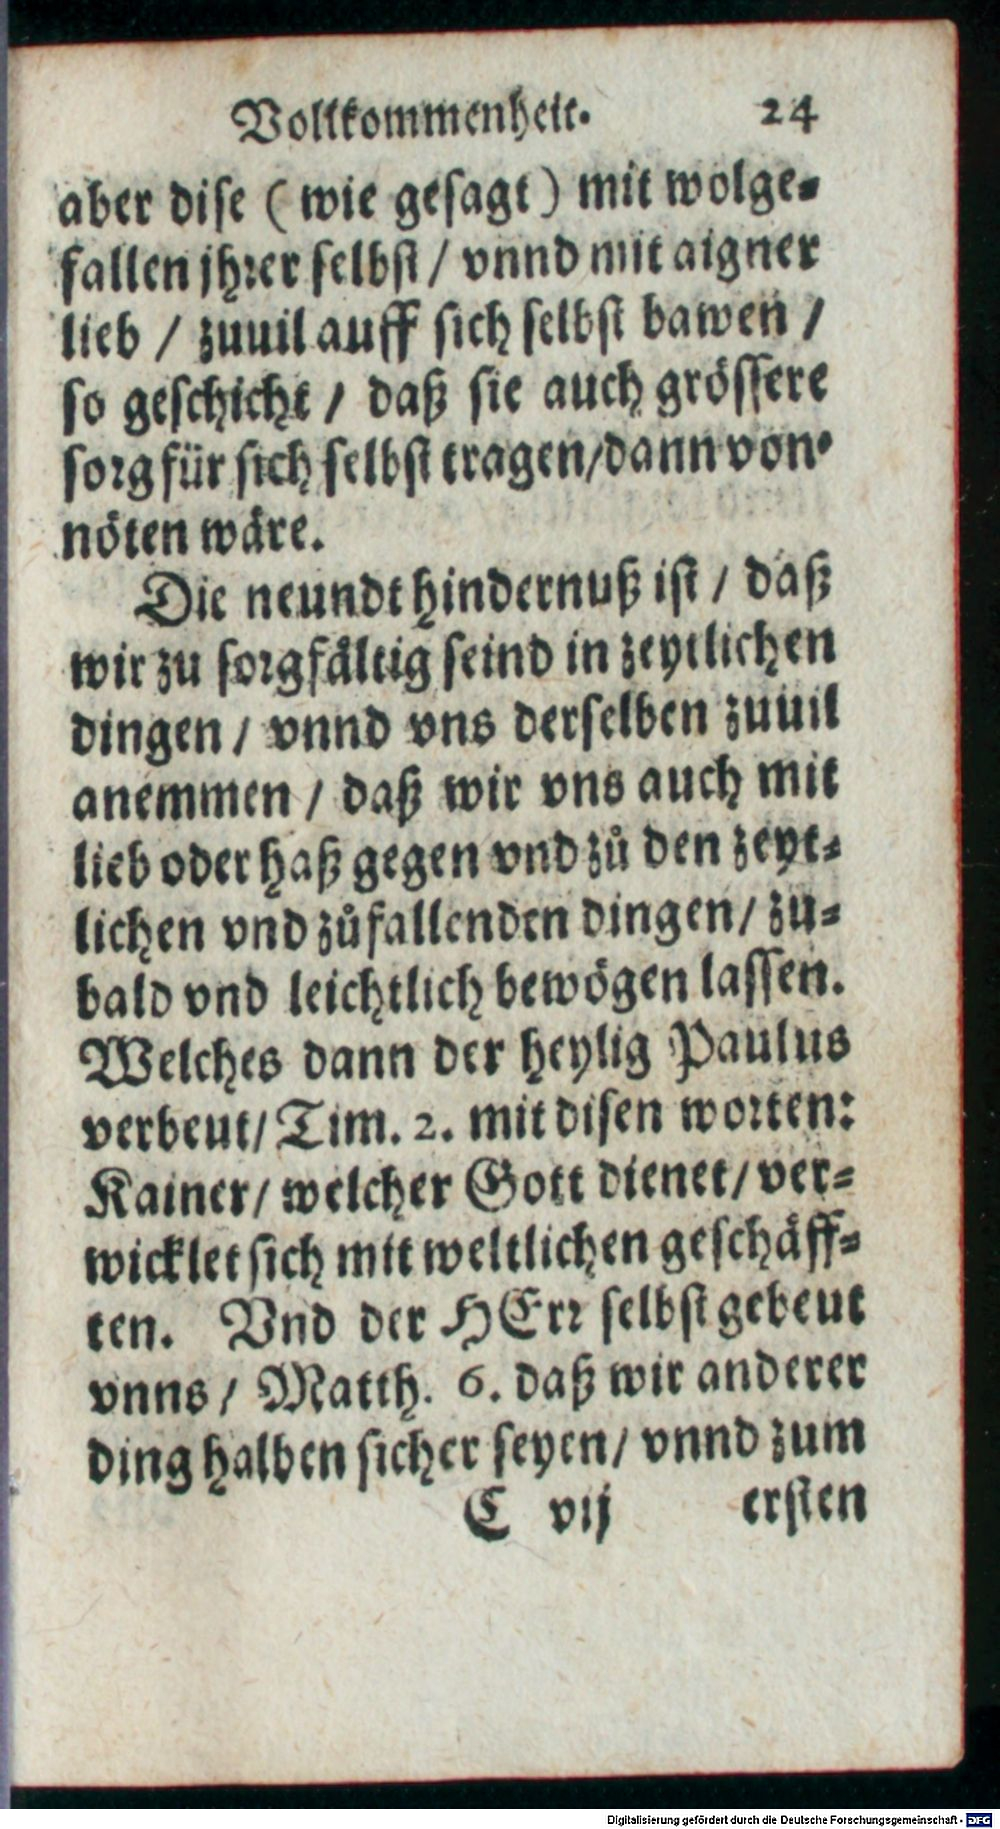 Vollkommenheit. 24
aber dise ( wie gesagt ) mit wolge-
fallen jhrer selbst / vnnd mit aigner
lieb / zuuil auff sich selbst bawen /
so geschicht / daß sie auch grössere
sorg für sich selbst tragen/dann von-
nöten wäre.
Die neundt hindernuß ist / daß
wir zu sorgfåltig seind in zeytlichen
dingen / vnnd vns derselben zuuil
anemmen / daß wir vns auch mit
lieb oder haß gegen vnd zů den zeyt-
lichen vnd zůfallenden dingen/ zu-
bald vnd leichtlich bewögen lassen.
Welches dann der heylig Paulus
verbeut/ Tim. 2. mit disen worten:
Kainer/ welcher Gott dienet/ ver-
wicklet sich mit weltlichen geschäff-
ten. Vnd der HErr selbst gebeut
vnns/ Matth. 6. daß wir anderer
ding halben sicher seyen/ vnnd zum
C vij ersten
Digitalisierung gefördert durch die Deutsche Forschungsgemeinschaft - DFG